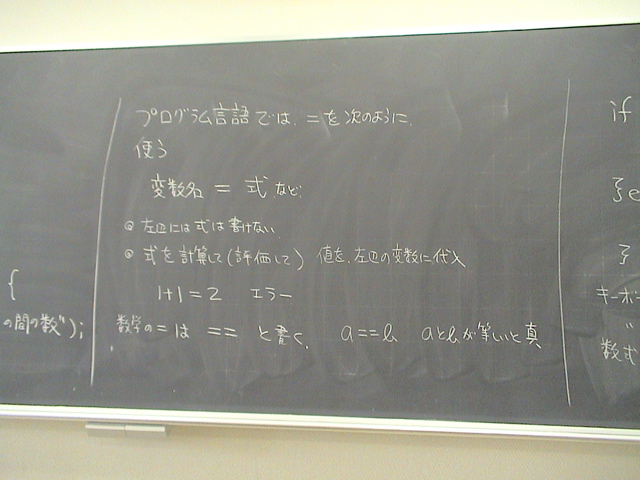 {
の間の数");
プログラム言語では、=を次のように、
使う
変数名 = 式 など
左辺には式は書けない
式を計算して(評価して) 値を、左辺の変数に代入
1+1=2 エラー
数学の=は == と書く、 a==b aとbが等しいと真
if
}e
}
キーボー
"
数式